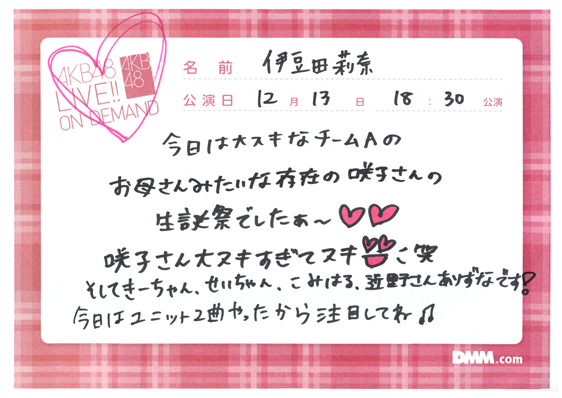 AKB48
LIVE!!
ON DEMAND
AKB
48
名前 伊豆田莉奈
公演日 12月13日 18:30公演
今日は大スキなチームAの
お母さんみたいな存在の咲子さんの
生誕祭でしたぁ〜
咲子さん大スキすぎてスキ 笑
そしてきーちゃん、せいちゃん、こみはる、近野さんありずなです!
今日はユニット2曲やったから注目してね♫
DMM.com